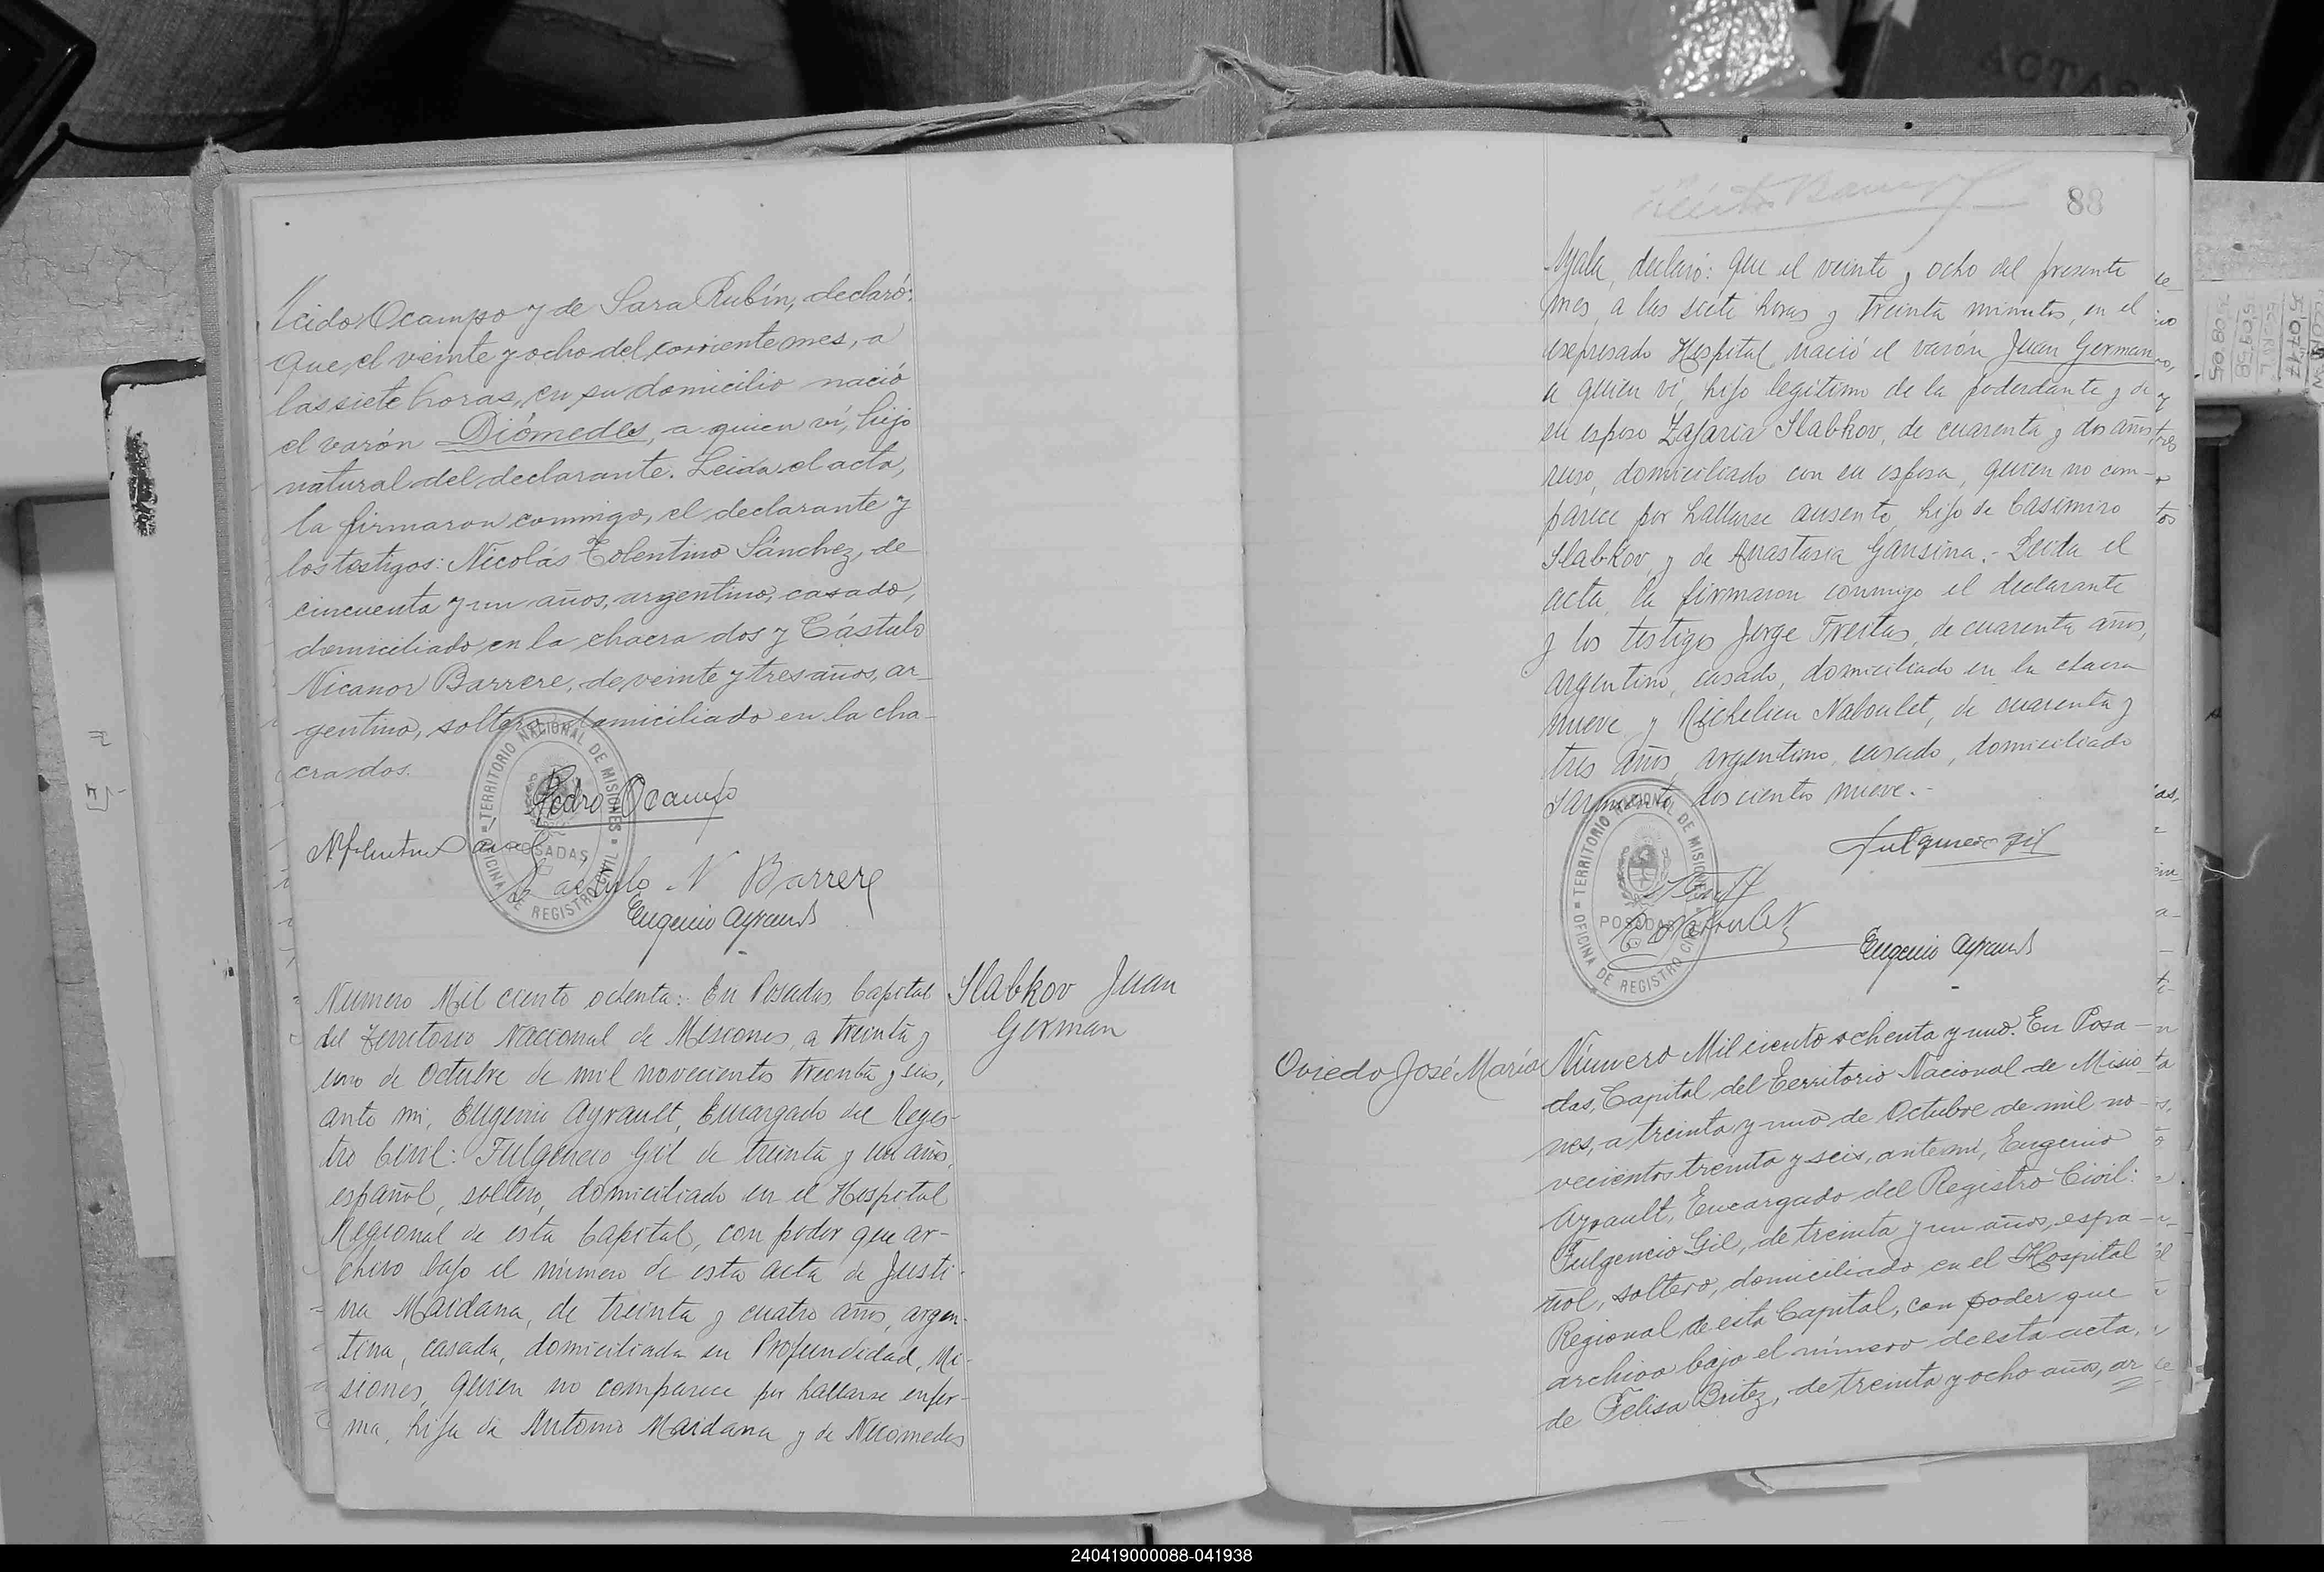 cido Ocampo y de Sara Rubín, declaró:
Que el veinte y ocho del corriente mes, a
las siete horas, en su domicilio nació
el varón Diómedes, a quien ví, hijo
natural del declarante. Leida el acta,
la firmaron conmigo, el declarante y
los testigos: Nicolás Tolentino Sánchez, de
cincuenta y un años, argentino, casado,
domiciliado en la chacra dos y Cástulo
Nicanor Barrere, de veinte y tres años, ar-
gentino, soltero, domiciliado en la cha-
cra dos.
TERRITORIO NACIONAL DE MISIONES
OFICINA DE REGISTRO CIVIL
POSADAS
Pedro Ocampo
Castulo N Barrere
Eugenio Ayrault
Slabkov Juan
German
Numero Mil ciento ochenta: En Posadas, Capital
del Territorio Nacional de Misiones, a treinta y
uno de Octubre de mil novecientos treinta y seis,
ante mi, Eugenio Ayrault, Encargado del Regis-
tro Civil: Fulgencio Gil de treinta y un años,
español, soltero, domiciliado en el Hospital
Regional de esta Capital, con poder que ar-
chivo bajo el número de esta acta de Justi-
na Maidana, de treinta y cuatro años, argen-
tina, casada, domiciliada en Profundidad, Mi-
siones, quien no comparece por hallarse enfer-
ma, hija de Antonio Maidana y de Nicomedes
88
Ayala, declaró: Que el veinte y ocho del presente
mes, a las siete horas y treinta minutos, en el
expresado Hospital nació el varón Juan German,
a quien ví, hijo legitimo de la poderdante y de
su esposo Zafaria Slabkov, de cuarenta y dos años,
ruso, domiciliado con su esposa, quien no com-
parece por hallarse ausente, hijo de Casimiro
Slabkov y de Anastasia Gansina.- Leida el
acta, la firmaron conmigo el declarante
y los testigos Jorge Freitas, de cuarenta años,
argentino, casado, domiciliado en la chacra
nueve y Richelieu Naboulet, de cuarenta y
tres años, argentino, casado, domiciliado
Sarmiento doscientos nueve.-
TERRITORIO NACIONAL DE MISIONES
OFICINA DE REGISTRO CIVIL
POSADAS
Fulgencio Gil
R. Naboulet
Eugenio Ayrault
Oviedo José María
Número Mil ciento ochenta y uno. En Posa-
das, Capital del Territorio Nacional de Misio-
nes, a treinta y uno de Octubre de mil no-
vecientos treinta y seis, ante mi, Eugenio
Ayrault, Encargado del Registro Civil:
Fulgencio Gil, de treinta y un años, espa-
ñol, soltero, domiciliado en el Hospital
Regional de esta Capital, con poder que
archivo bajo el número de esta acta,
de Felisa Britez, de treinta y ocho años, ar
240419000088-041938